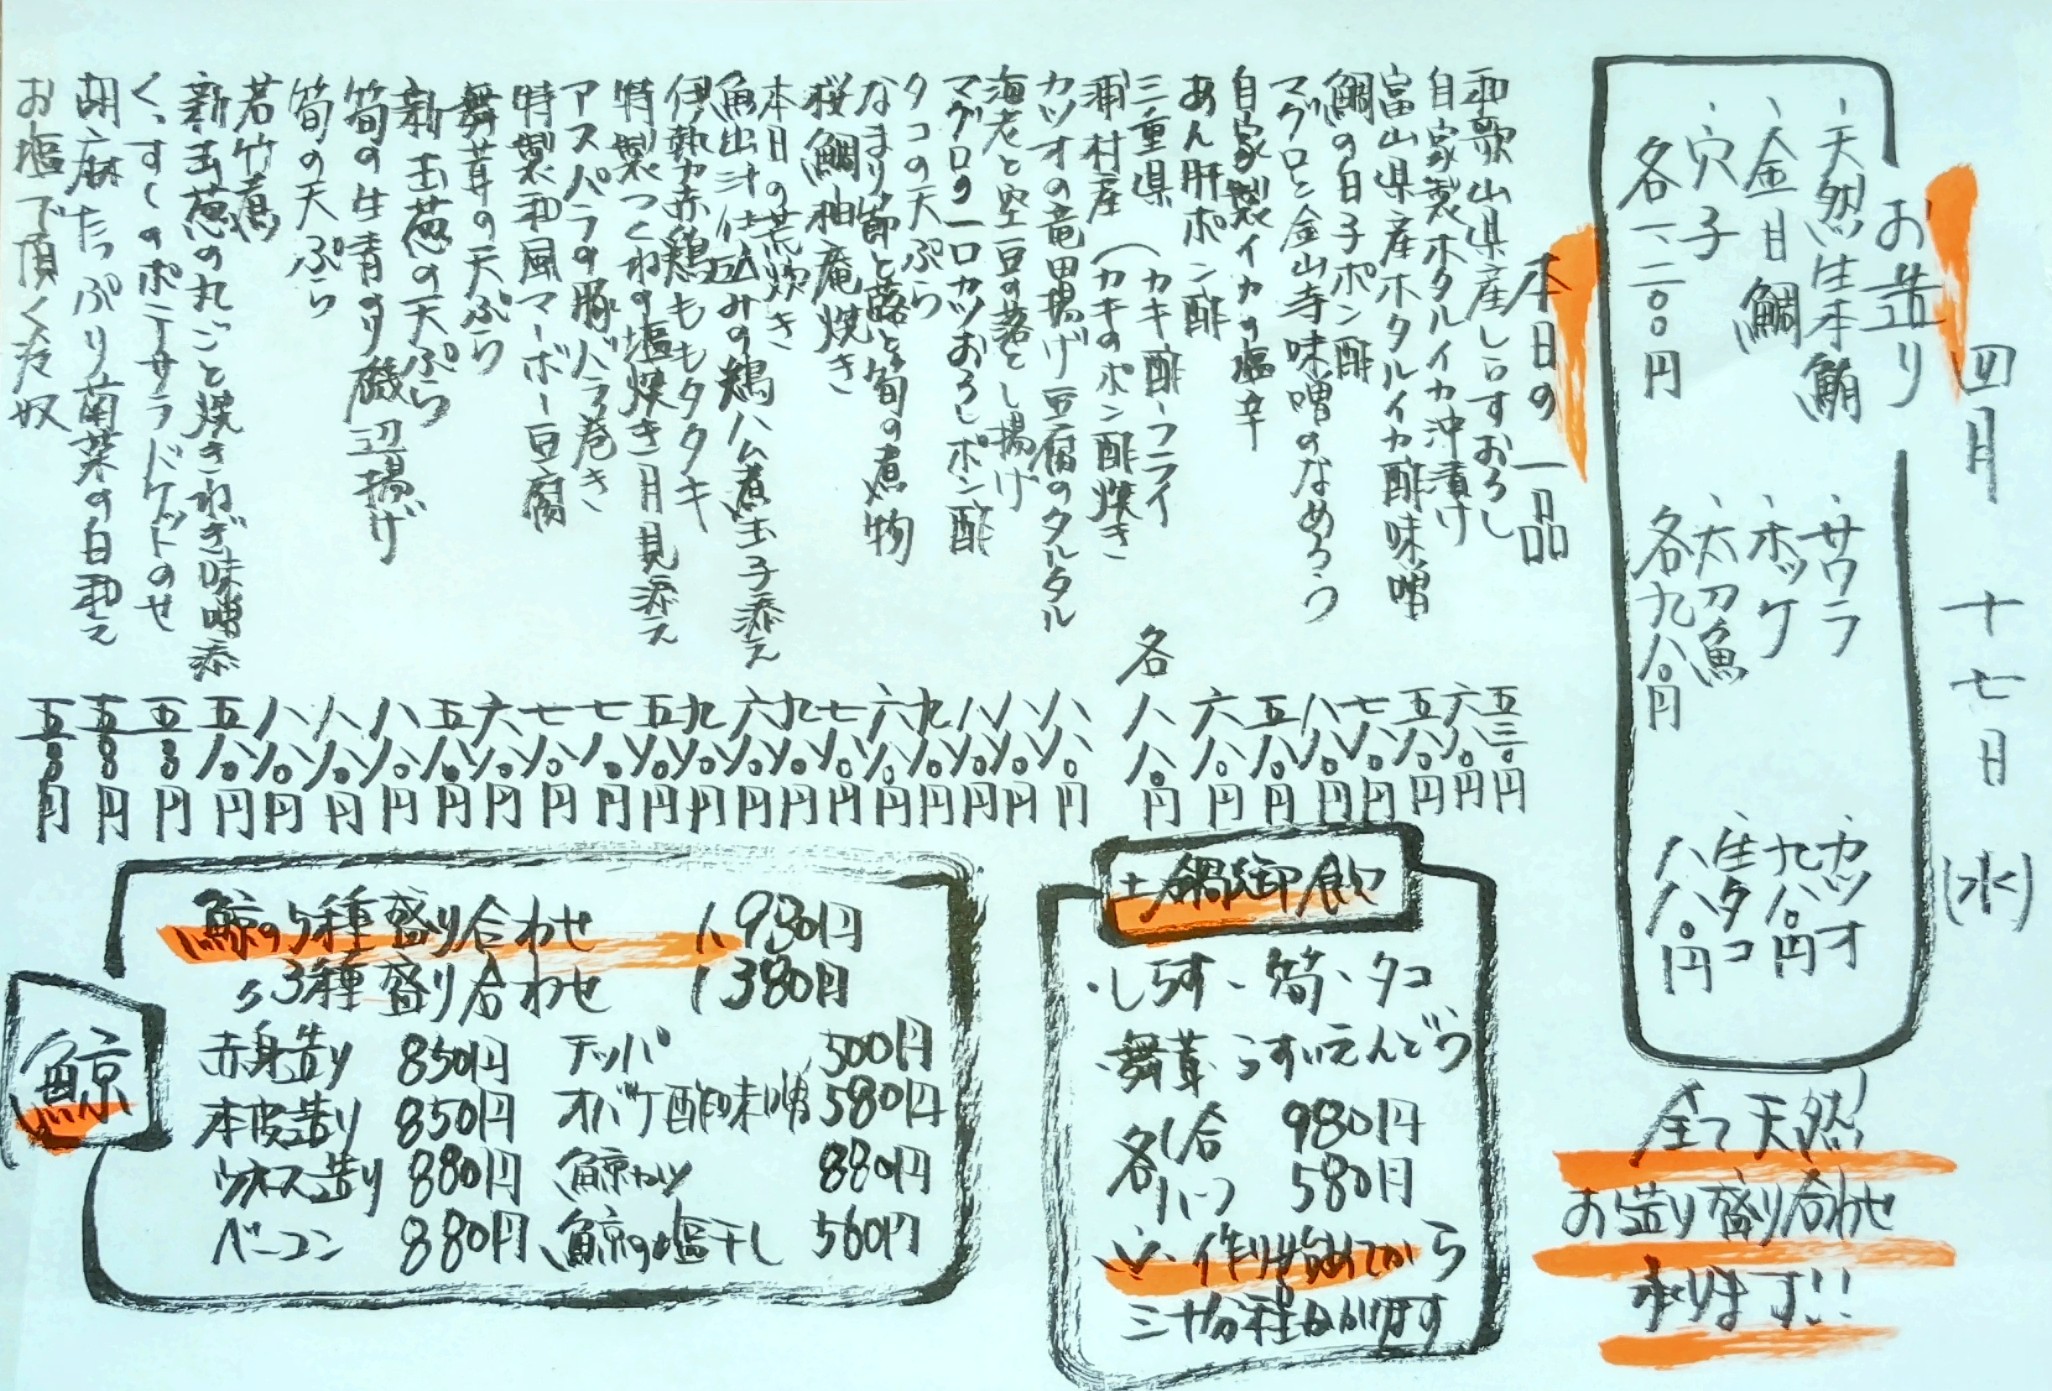 四月十七日(水)
お造り
・天然生本鮪
・金目鯛
・穴子
各一、二〇〇円
・サワラ
・ホッケ
・太刀魚
各九八〇円
カツオ
九八〇円
生タコ
八八〇円
全て天然!
お造り盛り合わせ
承ります!!
本日の一品
和歌山県産しらすおろし 五三〇円
自家製ホタルイカ沖漬け 六八〇円
富山県産ホタルイカ酢味噌 五八〇円
鯛の白子ポン酢 七八〇円
マグロと金山寺味噌のなめろう 八八〇円
自家製イカの塩辛 五八〇円
あん肝ポン酢 六八〇円
三重県 (カキ酢・フライ
浦村産 (カキのポン酢焼き 各八八〇円
カツオの竜田揚げ豆腐のタルタル 八八〇円
海老と空豆の落とし揚げ 八八〇円
マグロの一口カツおろしポン酢 八八〇円
タコの天ぷら 九八〇円
なまり節と蕗と筍の煮物 六八〇円
桜鯛柚庵焼き 七八〇円
本日の荒炊き 九八〇円
魚出汁仕込みの鶏ハム煮玉子添え 六八〇円
伊勢赤鶏ももタタキ 九八〇円
特製つくねの塩焼き月見添え 五八〇円
アスパラの豚バラ巻き 七八〇円
特製和風マーボー豆腐 七八〇円
舞茸の天ぷら 六八〇円
新玉葱の天ぷら 五八〇円
筍の生青のり磯辺揚げ 八八〇円
筍の天ぷら 八八〇円
若竹煮 八八〇円
新玉葱の丸ごと焼きねぎ味噌添 五八〇円
くっすくのポテサラドケットのせ 五五〇円
胡麻たっぷり菊菜の白和え 五五〇円
お塩で頂く冷奴 五五〇円
土鍋御飯
・しらす・筍・タコ
・舞茸・うすいえんどう
各1合 980円
各1ハーフ 580円
※作り始めてから
三十分程かかります
鯨
鯨の5種盛り合わせ 1,980円
〃3種盛り合わせ 1,380円
赤身造り 850円 テッパ 500円
本皮造り 850円 オバケ酢味噌 580円
ウネス造り 880円 鯨カツ 880円
ベーコン 880円 鯨の塩干し 560円